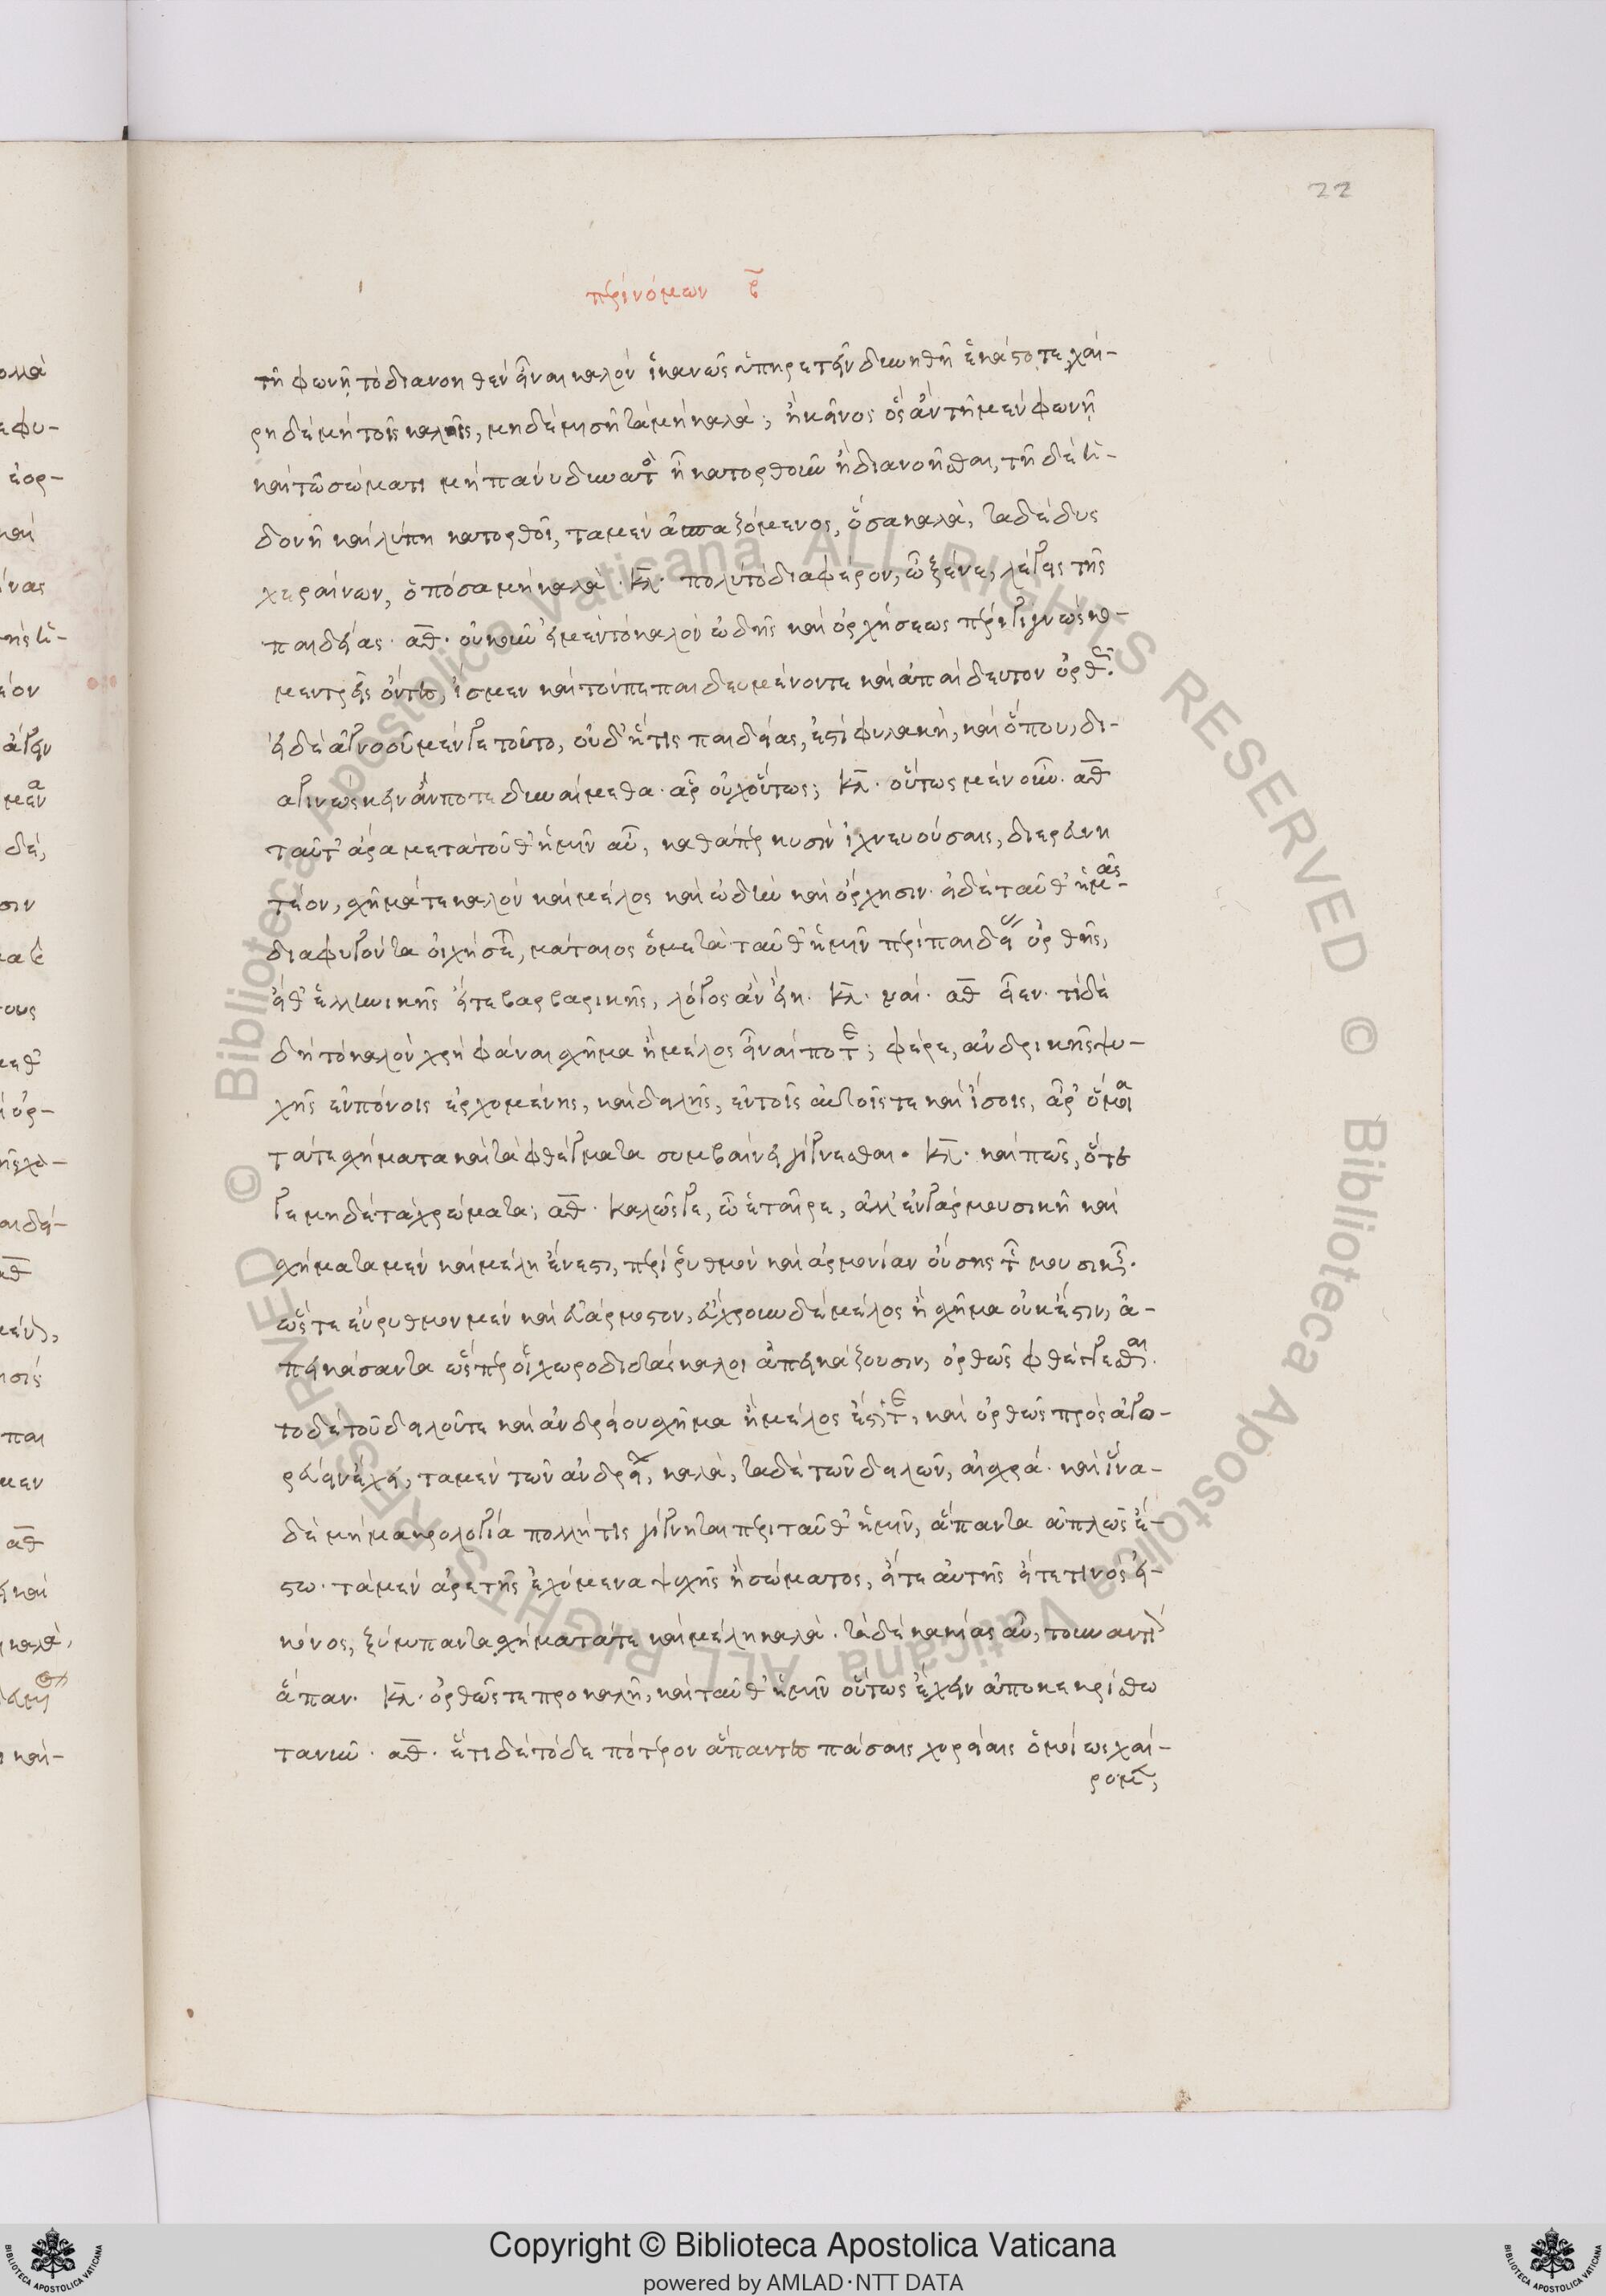 22
περὶ νόμων β
τῆ φωνῆ τὸ διανοηθὲν εἶναι καλὸν ἱκανῶς ὑπηρετεῖν δυνηθῆ ἑκάστοτε, χαί-
ρη δὲ μὴ τοῖς καλοῖς, μηδὲ μισῆ τὰ μὴ καλά; ἢ κεῖνος ὃς ἂν τῆ μὲν φωνῆ
καὶ τῶ σώματι μὴ πάνυ δυνατὸς ἦ κατορθοῦν ἢ διανοεῖσθαι, τῆ δὲ ἡ-
δονῆ καὶ λύπη κατορθοῖ, τὰ μὲν ἀσπαζόμενος, ὅσα καλά, τὰ δὲ δυς
χεραίνων, ὁπόσα μὴ καλά. κλ. πολὺ τὸ διαφέρον, ὦ ξένε, λέγεις τῆς
παιδείας. αθ. οὐκοῦν εἰ μὲν τὸ καλὸν ὠδῆς καὶ ὀρχήσεως πέρι γιγνώσκο-
μεν τρεῖς ὄντες, ἴσμεν καὶ τὸν πεπαιδευμένον τε καὶ ἀπαίδευτον ὀρθῶς.
εἰ δὲ ἀγνοοῦμέν γε τοῦτο, οὐδ' εἴ τις παιδείας, ἐστὶ φυλακὴ, καὶ ὅπου, δι-
αγινώσκειν ἄν ποτε δυναίμεθα. ἆρ' οὐχ οὕτως; κλ. οὕτως μὲν οὖν. αθ
ταῦτ' ἄρα μετὰ τοῦθ' ἡμῖν αὖ, καθάπερ κυσὶν ἰχνευούσαις, διερευνη
τέον, σχῆμά τε καλὸν καὶ μέλος καὶ ὠδὴν καὶ ὄρχησιν. εἰ δὲ ταῦθ' ἡμᾶς-
διαφυγόντα οἰχήσεται, μάταιος ὁ μετὰ ταῦθ' ἡμῖν περὶ παιδείας ὀρθῆς,
εἴθ' ἑλληνικῆς εἴτε βαρβαρικῆς, λόγος ἂν εἴη. κλ. ναί. αθ εἶεν. τί δὲ
δὴ τὸ καλὸν χρὴ φάναι σχῆμα ἢ μέλος εἶναί ποτε; φέρε, ἀνδρικῆς ψυ-
χῆς ἐν πόνοις ἐρχομένης, καὶ δειλῆς, ἐν τοῖς αὐτοῖς τε καὶ ἴσοις, ἆρ' ὅμοια
τά τε σχήματα καὶ τὰ φθέγματα συμβαίνει γίγνεσθαι. κλ. καὶ πῶς, ὅτε
γε μηδὲ τὰ χρώματα; αθ. καλῶς γε, ὦ ἑταῖρε, ἀλλ' ἐν γὰρ μουσικῆ καὶ
σχήματα μὲν καὶ μέλη ἔνεστι, περὶ ῥυθμὸν καὶ ἁρμονίαν οὔσης τῆς μουσικῆς.
ὥστε εὔρυθμον μὲν καὶ εὐάρμοστον, εὔχρουν δὲ μέλος ἢ σχῆμα οὐκ ἔστιν, ἀ-
πεικάσαντα ὥσπερ οἱ χωροδιδάσκαλοι ἀπεικάζουσιν, ὀρθῶς φθέγγεσθαι.
τὸ δὲ τοῦ δειλοῦ τε καὶ ἀνδρείου σχῆμα ἢ μέλος ἔστι τε, καὶ ὀρθῶς προσαγο-
ρεύειν ἔχει, τὰ μὲν τῶν ἀνδρείων, καλά, τὰ δὲ τῶν δειλῶν, αἰσχρά. καὶ ἵνα-
δὲ μὴ μακρολογία πολλή τις γίγνηται περὶ ταῦθ' ἡμῖν, ἅπαντα ἁπλῶς ἔ-
στω. τὰ μὲν ἀρετῆς ἐχόμενα ψυχῆς ἢ σώματος, εἴτε αὐτῆς εἴτε τινὸς εἰ-
κόνος, ξύμπαντα σχήματά τε καὶ μέλη καλά. τὰ δὲ κακίας αὖ, τοὐναντίον
ἅπαν. κλ. ὀρθῶς τε προκαλῆ, καὶ ταῦθ' ἡμῖν οὕτως ἔχειν ἀποκεκρίσθω
τανῦν. αθ. ἔτι δὲ τόδε πότερον ἅπαντες πάσαις χορείαις ὁμοίως χαί-
ρομεν,
Copyright © Biblioteca Apostolica Vaticana
powered by AMLAD·NTT DATA